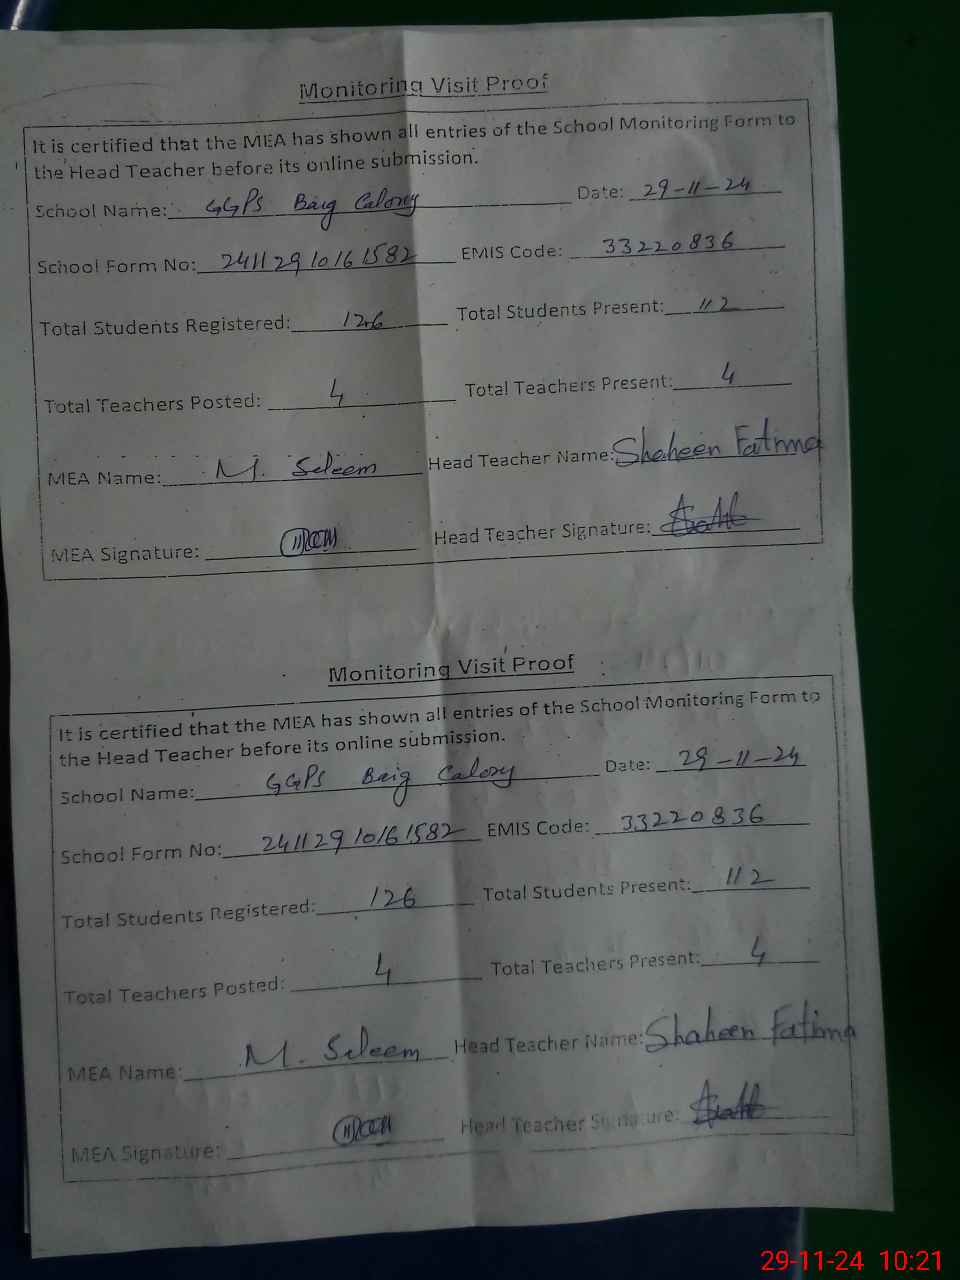 Monitoring Visit Proof
It is certified that the MEA has shown all entries of the School Monitoring Form to
the Head Teacher before its online submission.
School Name: GGPS Baig Calony Date: 29-11-24
School Form No: 241129 10161582 EMIS Code: 33220836
Total Students Registered: 126 Total Students Present: 112
Total Teachers Posted: 4 Total Teachers Present: 4
MEA Name: M. Seleem Head Teacher Name: Shaheen Fatima
MEA Signature: Head Teacher Signature:
Monitoring Visit Proof
It is certified that the MEA has shown all entries of the School Monitoring Form to
the Head Teacher before its online submission.
School Name: GGPS Baig Calony Date: 29-11-24
School Form No: 241129 10161582 EMIS Code: 33220836
Total Students Registered: 126 Total Students Present: 112
Total Teachers Posted: 4 Total Teachers Present: 4
MEA Name: M. Seleem Head Teacher Name: Shaheen Fatima
MEA Signature: Head Teacher Signature:
29-11-24 10:21